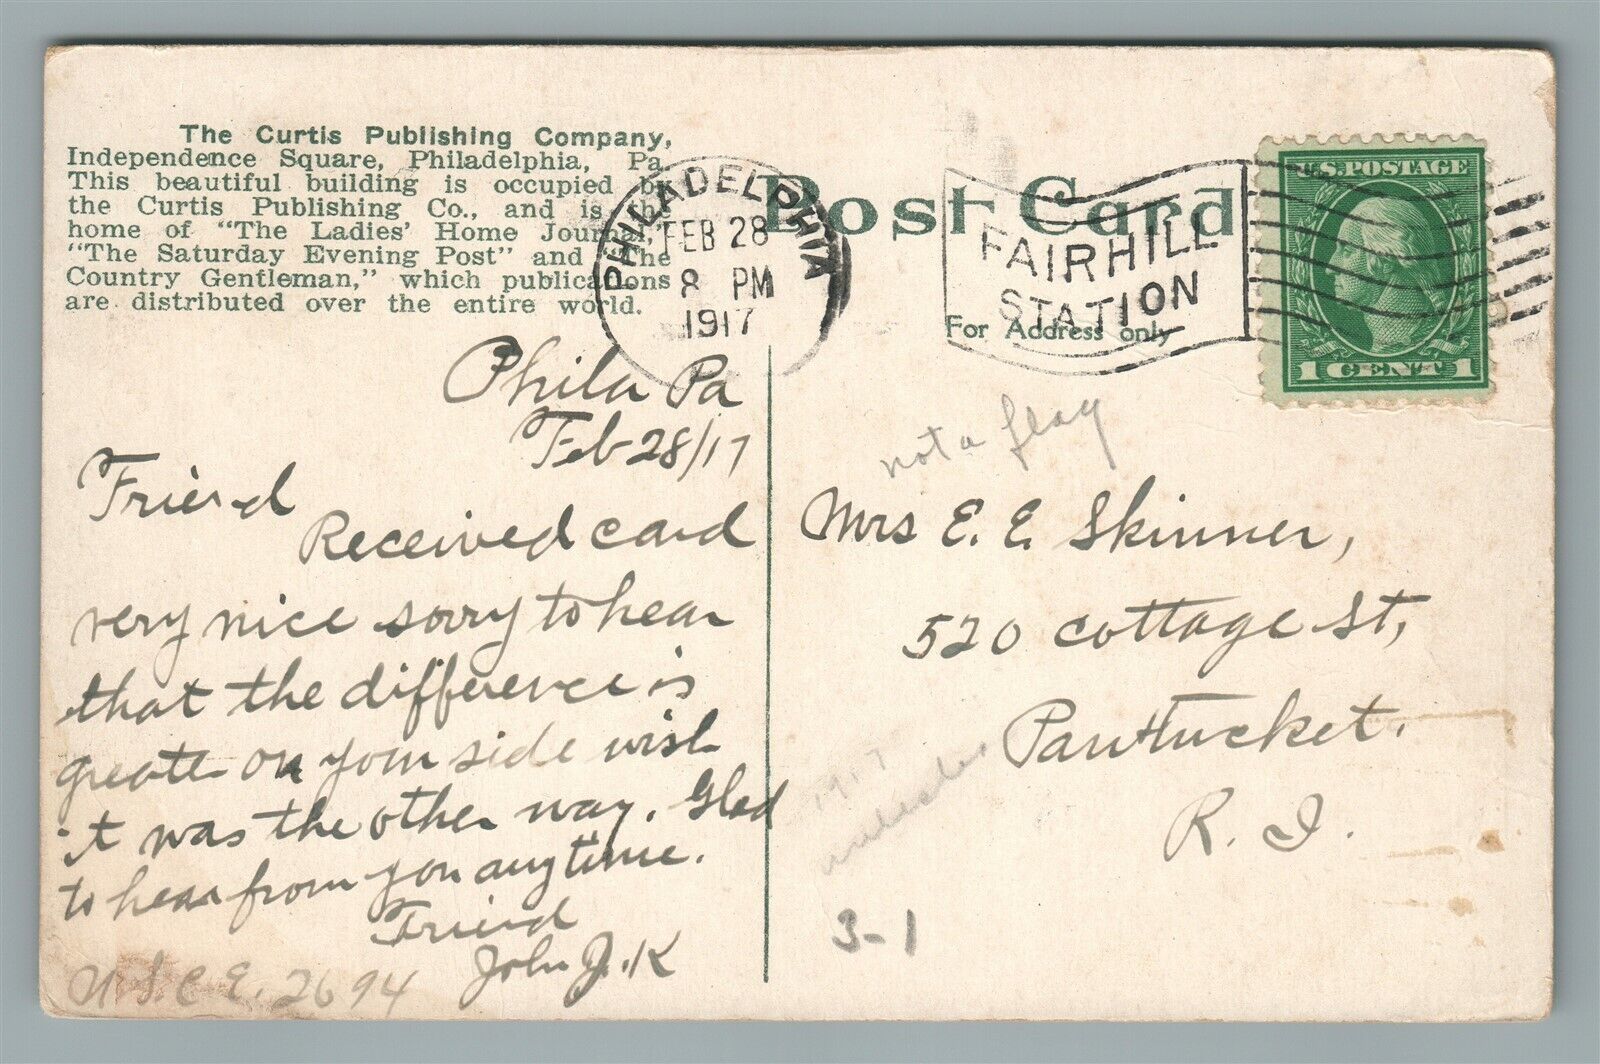 The Curtis Publishing Company,
Independence Square, Philadelphia, Pa.
This beautiful building is occupied by
the Curtis Publishing Co., and is the
home of "The Ladies' Home Journal,"
"The Saturday Evening Post" and "The
Country Gentleman," which publications
are distributed over the entire world.
PHILADELPHIA
FEB 28
8 PM
1917
Post Card
FAIRHILL
STATION
For Address only
U.S. POSTAGE
1 CENT 1
Phila Pa
Feb 28/17
Friend
Received card
very nice sorry to hear
that the difference is
greater on your side wish
it was the other way. Glad
to hear from you anytime.
Friend
John J. K
U.S.C.E. 2694
not a flag
Mrs E. E. Skinner,
520 Cottage St,
Pawtucket.
R. I.
1917
3-1